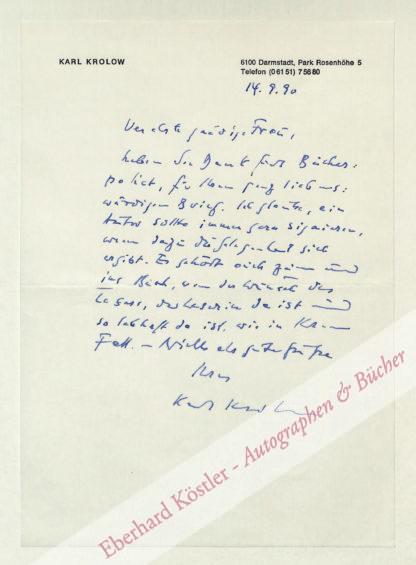 KARL KROLOW
6100 Darmstadt, Park Rosenhöhe 5
Telefon (06151) 75680
14.9.90
Verehrte gnädige Frau,
haben Sie Dank fürs Bücher-
paket, für Ihren ganz liebens-
würdigen Brief. Ich glaube, ein
Autor sollte immer gern signieren,
wenn dazu die Gelegenheit sich
ergibt. Es gehört auch zum und
ins Buch, wenn der Wunsch des
Lesers, der Leserin da ist und
so lebhaft da ist, wie in Ihrem
Fall. – Nichts als gute Grüße
Ihres
Karl Krolow
Eberhard Köstler - Autographen & Bücher